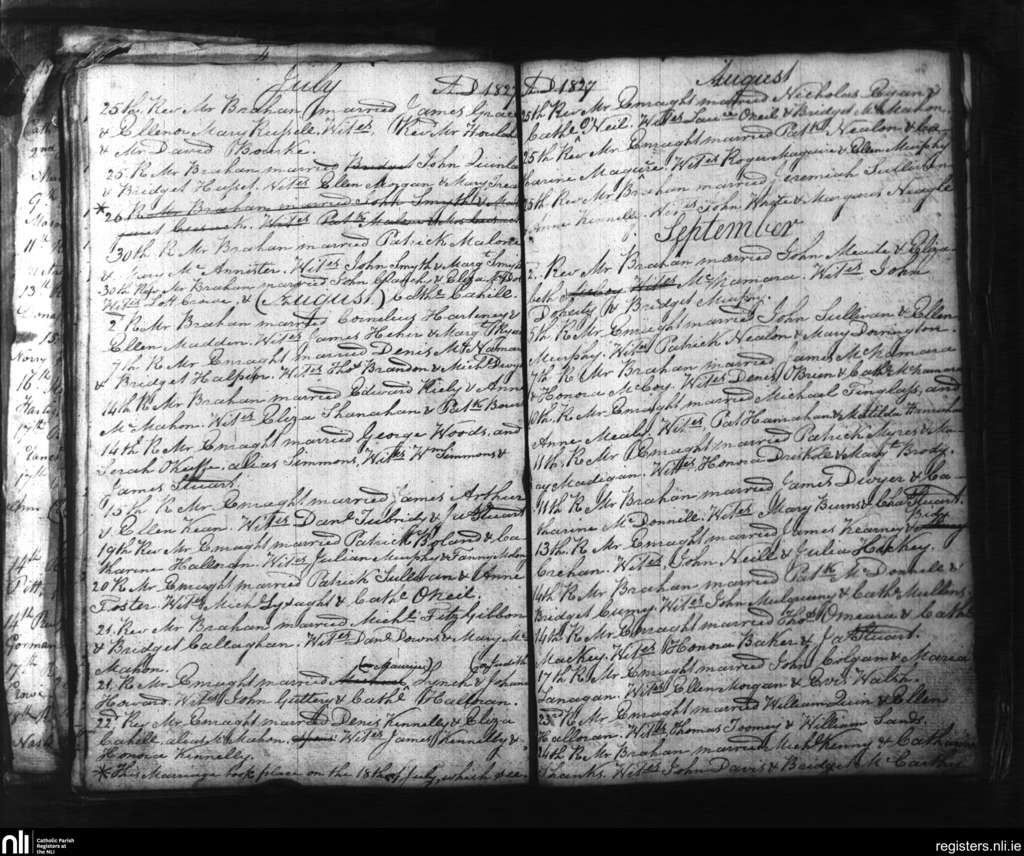 July AD 1827
25th Rev Mr Brahan married James Grace
& Ellenor Mary Russell. Wit.es Rev Mr
& Mr David O'Rourke.
25. R Mr Brahan married John Quinla
& Bridget Wit.es Ellen Morgan & Mary
* 26 R Mr Brahan married John Smyth & Mar
Wit.es Patk
30th R Mr Brahan married Patrick Malone
& Mary Mc Annister. Wit.es John Smyth & Margt Smyth
30th Rev Mr Brahan married John & Eliza
Wit.es Patt & Cathe Cahill.
(August)
2 R Mr Brahan married Cornelius Harteney &
Ellen Madden. Wit.es James Hehir & Margt Ryan
7th R Mr Enraght married Denis Mc Namar
& Bridget Halpin. Wit.es Thos Brandon & Michl Dwye
14th R Mr Brahan married Edward Kiely & Anne
Mc Mahon. Wit.es Eliza Shanahan & Patk Bour
14th R Mr Enraght married George Woods and
Sarah Okeeffe alias Simmons, Wit.es Wm Simmons &
James Stuart.
15th R Mr Enraght married James Arthur
& Ellen Kean. Wit.es Danl Tubridy & Jas Stuart
19th Rev Mr Enraght married Patrick Boland & Ca
tharine Halloran. Wit.es Julian Murphy & Fanny Molon
20 R Mr Enraght married Patrick Sullivan & Anne
Foster. Wit.es Michl Lysaght & Cathe ONeil.
21. Rev Mr Brahan married Michl Fitz Gibbon
& Bridget Callaghan. Wit.es Danl Downs & Mary Mc
Mahon. (or Maurice) (or Judith
21. R Mr Enraght married Lynch & Johana
Howard. Wit.es John Guttery & Cathe O'Halloran.
22. Rev Mr Enraght married Denis Kennelly & Eliza
Cahill alias McMahon. Wit.es James Kennelly &
Honora Kennelly.
* This Marriage took place on the 18th of July, which see.
AD 1827 August
25th Rev Mr Enraght married Nicholas Cryan &
Cathe O'Neil. Wit.es Laurce O'neil & Bridget McMahon
25th Rev Mr Enraght married Patk Nealon & Ca
tharine Maguire. Wit.es Roger Maguire & Ellen Murphy
25th Rev Mr Brahan married Jeremiah Sullivan
& Anne Kinnelly Wit.es John & Margaret
September
2. Rev Mr Brahan married John Meade & Eliza
beth McNamara. Wit.es John
Doherty & Bridget Murphy.
5th R Mr Enraght married John Sullivan & Ellen
Murphy. Wit.es Patrick Nealon & Mary Dorrington.
7th R Mr Brahan married James McNamara
& Honora McCoy. Wit.es Denis O'Brien & Cathe McNamara
10th. R Mr Enraght married Michael Finglass, and
Anne Mealy. Wit.es Pat Hanrahan & Matilda
11th. R Mr Enraght married Patrick Myres & Ma
ry Madigan. Wit.es Honora Driskole & Mary Brody.
11th R Mr Brahan married James Dwyer & Ca
tharine McDonnell. Wit.es Mary Burns & Chas Stuart.
13th. R Mr Enraght married James Kearney & Bridgt
Crehan. Wit.es John Neill & Julia Hickey.
14th R Mr Brahan married Patk McDonnell &
Bridget Wit.es John Mulqueany & Cathe Mullens.
14th R Mr Enraght married Thos O'meara & Cathe
Mackey. Wit.es Honora Baker & Jas Stuart.
17th R Mr Enraght married John Colgan & Maria
Lanagan. Wit.es Ellen Morgan & Walsh.
23 R Mr Enraght married William Quin & Ellen
Halloran. Wit.es Thomas Toomey & William Sands.
24th R Mr Brahan married Michl Kenny & Catharine
Shanks. Wit.es John Davis & Bridget McCarthy
nli Catholic Parish
Registers at
the NLI
registers.nli.ie